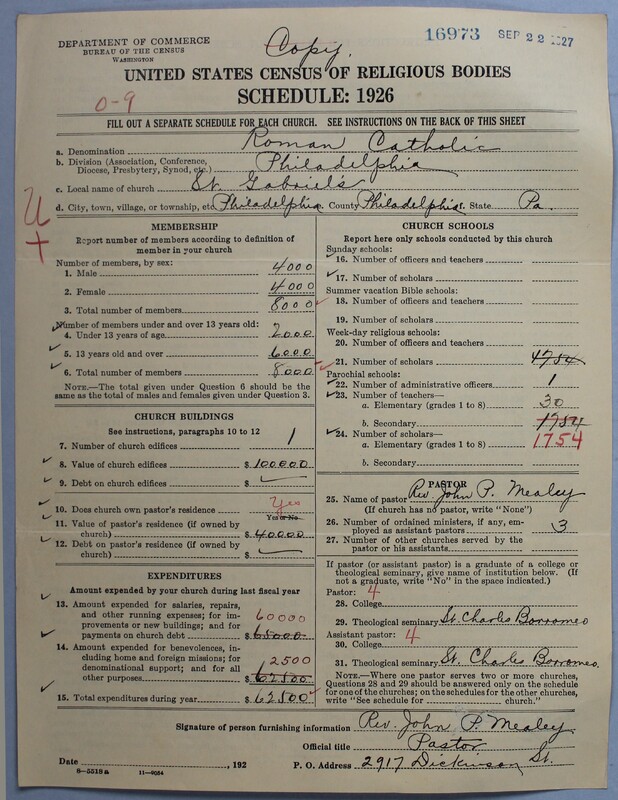 DEPARTMENT OF COMMERCE
BUREAU OF THE CENSUS
WASHINGTON
Copy.
16973 SEP 22 1927
UNITED STATES CENSUS OF RELIGIOUS BODIES
SCHEDULE: 1926
0-9
FILL OUT A SEPARATE SCHEDULE FOR EACH CHURCH. SEE INSTRUCTIONS ON THE BACK OF THIS SHEET
a. Denomination Roman Catholic
b. Division (Association, Conference, Diocese, Presbytery, Synod, etc.) Philadelphia
c. Local name of church St. Gabriel's
d. City, town, village, or township, etc. Philadelphia County Philadelphia State Pa.
MEMBERSHIP
Report number of members according to definition of
member in your church
Number of members, by sex:
1. Male 4000
2. Female 4000
3. Total number of members 8000
Number of members under and over 13 years old:
4. Under 13 years of age 2000
5. 13 years old and over 6000
6. Total number of members 8000
NOTE.—The total given under Question 6 should be the
same as the total of males and females given under Question 3.
CHURCH BUILDINGS
See instructions, paragraphs 10 to 12
7. Number of church edifices 1
8. Value of church edifices $ 100,000
9. Debt on church edifices $
10. Does church own pastor's residence? Yes
Yes or No
11. Value of pastor's residence (if owned by
church) $ 40000
12. Debt on pastor's residence (if owned by
church) $
EXPENDITURES
Amount expended by your church during last fiscal year
13. Amount expended for salaries, repairs,
and other running expenses; for im-
provements or new buildings; and for
payments on church debt $ 60000
14. Amount expended for benevolences,
including home and foreign missions; for
denominational support; and for all
other purposes $ 2500
62500
15. Total expenditures during year $ 62500
CHURCH SCHOOLS
Report here only schools conducted by this church
Sunday schools:
16. Number of officers and teachers
17. Number of scholars
Summer vacation Bible schools:
18. Number of officers and teachers
19. Number of scholars
Week-day religious schools:
20. Number of officers and teachers
21. Number of scholars 1754
Parochial schools:
22. Number of administrative officers 1
23. Number of teachers—
a. Elementary (grades 1 to 8) 30
b. Secondary 1754
24. Number of scholars—
a. Elementary (grades 1 to 8) 1754
b. Secondary
PASTOR
25. Name of pastor Rev. John P. Mealey
(If church has no pastor, write "None")
26. Number of ordained ministers, if any, em-
ployed as assistant pastors 3
27. Number of other churches served by the
pastor or his assistants
If pastor (or assistant pastor) is a graduate of a college or
theological seminary, give name of institution below. (If
not a graduate, write "No" in the space indicated.)
Pastor: 4
28. College
29. Theological seminary St. Charles Borromeo
Assistant pastor: 4
30. College
31. Theological seminary St. Charles Borromeo.
NOTE.—Where one pastor serves two or more churches,
Questions 28 and 29 should be answered only on the schedule
for one of the churches; on the schedules for the other churches,
write "See schedule for church."
Signature of person furnishing information Rev. John P. Mealey
Official title Pastor
Date , 192 P. O. Address 2917 Dickinson St.
8-5518a 11-9054